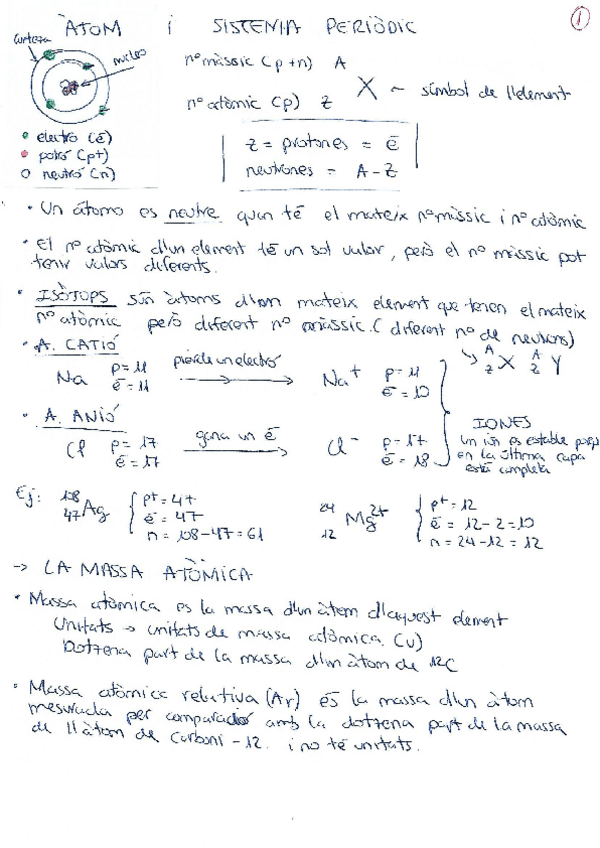 ÀTOM i SISTEMA PERIÒDIC
1
Corteza
nucleo
electró (ē)
potró (pt)
neutró (n)
nº màssic (p+n) A
nº atòmic (p) Z
X ~ símbol de l'element
Z = protones = ē
neutrones = A-Z
• Un átomo es neutre quan té el mateix nº màssic i nº atòmic
• El nº atòmic d'un element té un sol valor, però el nº màssic pot
tenir valors diferents.
• ISÒTOPS són àtoms d'un mateix element que tenen el mateix
nº atòmic però diferent nº màssic. (diferent nº de neutrons)
↳ A Z X A Z Y
• A. CATIÓ
Na p = 11 ē = 11 pierde un electró → Na+ p = 11 ē = 10
• A. ANIÓ
Cl p = 17 ē = 17 gana un ē → Cl- p = 17 ē = 18
IONES
un ión es estable
en la última capa
està completa
Ej: 108 47 Ag { p+ = 47 ē = 47 n = 108-47 = 61
24 12 Mg2+ { p+ = 12 ē = 12-2 = 10 n = 24-12 = 12
→ LA MASSA ATÒMICA
• Massa atòmica es la massa d'un àtom d'aquest element
Unitats → unitats de massa atòmica. (u)
Dotzena part de la massa d'un àtom de 12C
• Massa atòmica relativa (Ar) és la massa d'un àtom
mesurada per comparació amb la dotzena part de la massa
de l'àtom de Carboni-12. i no té unitats.